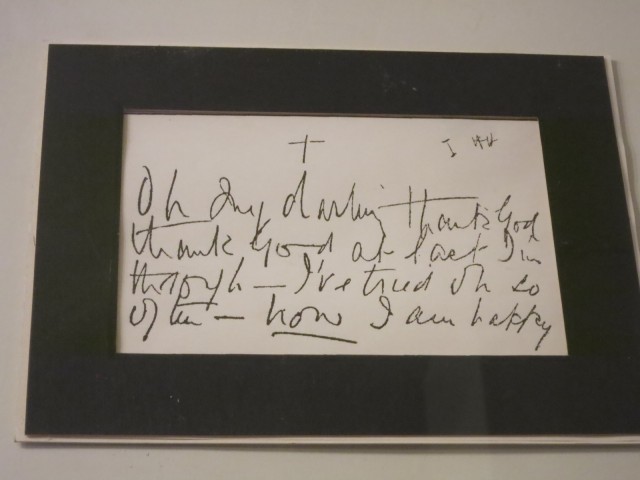 I
Oh my darling thank God
thank God at last I'm
through — I've tried oh so
often — now I am happy